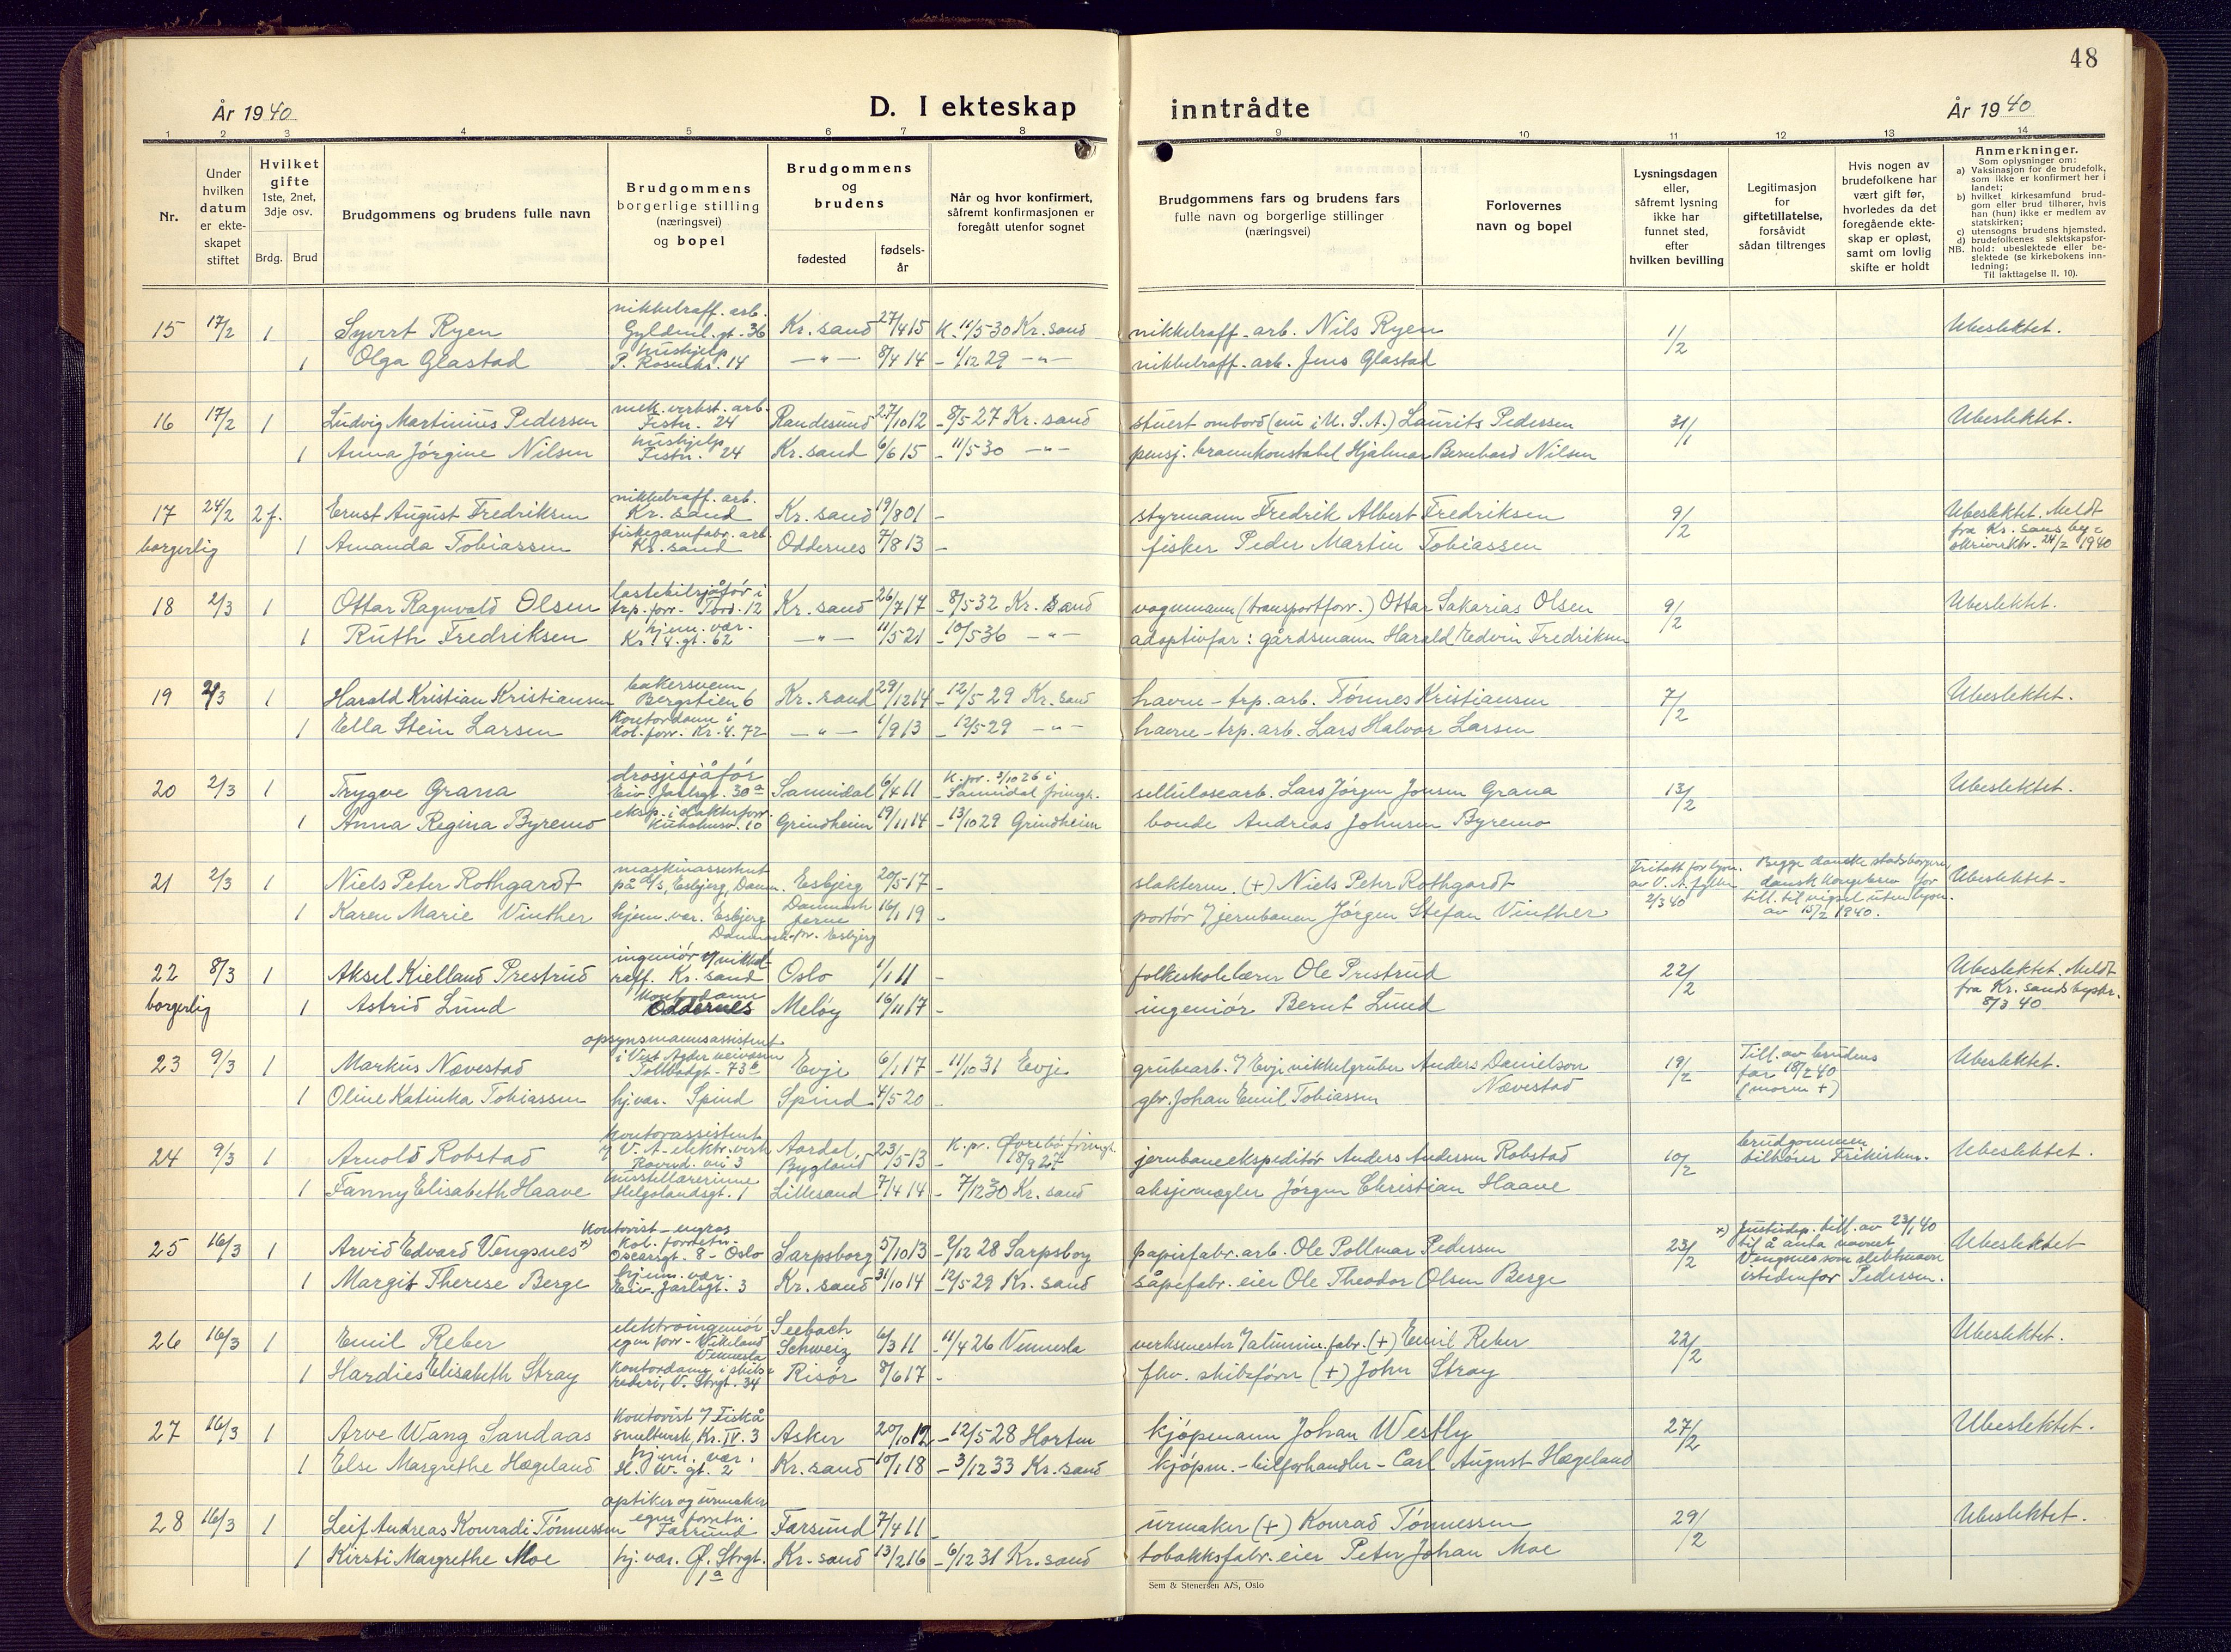 48
År 1940
D. I ekteskap inntrådte
År 1940
1 2 3 4 5 6 7 8 9 10 11 12 13 14
Nr.
Under hvilken datum er ekteskapet stiftet
Hvilket gifte 1ste, 2net, 3dje osv.
Brdg. Brud
Brudgommens og brudens fulle navn
Brudgommens borgerlige stilling (næringsvei) og bopel
Brudgommens og brudens
fødested
fødsels-år
Når og hvor konfirmert, såfremt konfirmasjonen er foregått utenfor sognet
Brudgommens fars og brudens fars fulle navn og borgerlige stillinger (næringsvei)
Forlovernes navn og bopel
Lysningsdagen eller, såfremt lysning ikke har funnet sted, efter hvilken bevilling
Legitimasjon for giftetillatelse, forsåvidt sådan tiltrenges
Hvis nogen av brudefolkene har vært gift før, hvorledes da det foregående ekteskap er opløst, samt om lovlig skifte er holdt
Anmerkninger.
Som oplysninger om:
a) Vaksinasjon for de brudefolk, som ikke er konfirmert her i landet;
b) hvilket kirkesamfund brudgom eller brud tilhører, hvis han (hun) ikke er medlem av statskirken;
c) utensogns brudens hjemsted.
d) brudefolkenes slektskapsforhold: ubeslektede eller beslektede (se kirkebokens innledning;
NB.
Til iakttagelse II. 10).
15 17/2 1 Syvert Ryen nikkelraff. arb. Gyldenl. gt. 36 Kr. sand 27/4 15 K. 11/5 30 Kr. sand nikkelraff. arb. Nils Ryen 1/2 Ubeslektet.
1 Olga Glastad hushjelp P. Rosenkr. 14 —"— 8/4 14 - 1/12 29 —"— nikkelraff. arb. Jens Glastad
16 17/2 1 Ludvig Martinius Pedersen mek. verkst. arb. Festn. 24 Randesund 27/10 12 - 8/5 27 Kr. sand stuert ombord (nu i U. S. A.) Laurits Pedersen 31/1 Ubeslektet.
1 Anna Jørgine Nilsen hushjelp Festn. 24 Kr. sand 6/6 15 - 11/5 30 —"— pensj. brannkonstabel Hjalmar Bernhard Nilsen
17 24/2 2 f. Ernst August Fredriksen nikkelraff. arb. Kr. sand Kr. sand 19/8 01 - styrmann Fredrik Albert Fredriksen 9/2 Ubeslektet. Meldt fra Kr. sands by- skriverktr. 24/2 1940
borgerlig 1 Amanda Tobiassen fiskegarnfabr. arb. Kr. sand Oddernes 7/8 13 - fisker Peder Martin Tobiassen
18 2/3 1 Ottar Ragnvald Olsen lastebilsjåfør i trp. forr. Tord. 12 Kr. sand 26/7 17 - 8/5 32 Kr. sand vognmann (transportforr.) Ottar Sakarias Olsen 9/2 Ubeslektet.
1 Ruth Fredriksen hjem. vær. Kr. 4. gt. 62 —"— 11/5 21 - 10/5 36 —"— adoptivfar: gårdsmann Harald Edvin Fredriksen
19 2/3 1 Harald Kristian Kristiansen bakersvenn Bergstien 6 Kr. sand 29/12 14 - 12/5 29 Kr. sand havne-trp. arb. Tønnes Kristiansen 7/2 Ubeslektet.
1 Ella Stein Larsen Kontordame i kol. forr. Kr. 4. 72 —"— 1/9 13 - 12/5 29 —"— havne-trp. arb. Lars Halvor Larsen
20 2/3 1 Trygve Grana drosjesjåfør Eiv. Jarlsgt. 30 a Sannidal 6/4 11 K. pr. 3/10 26 i Sannidal frimgh. cellulosearb. Lars Jørgen Jonsen Grana 13/2 Ubeslektet.
1 Anna Regina Byremo eksp. i slakterforr. Kuholmsv. 10 Grindheim 19/11 14 - 13/10 29 Grindheim bonde Andreas Johnsen Byremo
21 2/3 1 Niels Peter Rothgardt maskinassistent på a/s, Esbjerg, Danm. Esbjerg 20/5 17 - slakterm. (+) Niels Peter Rothgardt Fritatt for lysn. av V. A. fylke 2/3 40 Begge danske statsborgere dansk kongebrev for till. til vigsel uten lysn. av 15/2 1940. Ubeslektet.
1 Karen Marie Vinther hjem. vær. Esbjerg Danmark Jerne pr. Esbjerg Danmark 16/1 19 - portør v/ jernbanen Jørgen Stefan Vinther
22 8/3 1 Aksel Kielland Prestrud ingeniør v/ nikkelraff. Kr. sand Oslo 1/1 11 - folkeskolelærer Ole Prestrud 22/2 Ubeslektet. Meldt fra Kr. sands byskr. 8/3 40
borgerlig 1 Astrid Lund Kontordame Oddernes Meløy 16/11 17 - ingeniør Bernt Lund
23 9/3 1 Markus Nævestad opsynsmannsassistent i Vest Agder veivesen Tollbodgt. 73 b Evje 6/1 17 - 11/10 31 Evje grubearb. v/ Evje nikkelgruber Anders Danielson Nævestad 19/2 Till. av brudens far 18/2 40 (moren +) Ubeslektet.
1 Oline Katinka Tobiassen hj. vær. Spind Spind 4/5 20 - gbr. Johan Emil Tobiassen
24 9/3 1 Arnold Robstad kontorassistent v/ V. A. elektr. verk Ravnd. vei 3 Aardal, Bygland 23/5 13 K. pr. Øvrebø frimgh. 18/9 27 jernbaneekspeditør Anders Andersen Robstad 10/2 brudgommen tilhører Frikirken. Ubeslektet.
1 Fanny Elisabeth Haave husstellærerinne Helgolandsgt. 1 Lillesand 7/4 14 - 7/12 30 Kr. sand aksjemegler Jørgen Christian Haave
25 16/3 1 Arvid Edvard Vengsnes x) Kontorist - engros Kol. forretn. Oscarsgt. 8 - Oslo Sarpsborg 5/10 13 - 2/12 28 Sarpsborg papirfabr. arb. Ole Pollmar Pedersen 23/2 x) Justisdep. till. av 23/1 40 til å anta navnet Vengsnes som slektsnavn istedenfor Pedersen. Ubeslektet
1 Margit Therese Berge hjem. vær. Eiv. Jarlsgt. 3 Kr. sand 31/10 14 - 12/5 29 Kr. sand såpefabr. eier Ole Theodor Olsen Berge
26 16/3 1 Emil Reber elektroingeniør egen forr. - Vikeland Vennesla Seebach Schweiz 6/3 11 - 11/4 26 Vennesla verksmester v/ alumin. fabr. (+) Emil Reber 23/2 Ubeslektet.
1 Hardies Elisabeth Stray Kontordame i skibsrederi, V. Strgt. 34 Risør 8/6 17 - fhv. skibsfører (+) John Stray
27 16/3 1 Arve Wang Sandaas Kontorist v/ Fiskå smelteverk, Kr. IV. 3 Asker 20/10 12 - 12/5 28 Horten kjøpmann Johan Westly 27/2 Ubeslektet.
1 Else Margrethe Hægeland hjem. vær. H. W. gt. 2 Kr. sand 10/1 18 - 3/12 33 Kr. sand kjøpm. - bilforhandler - Carl August Hægeland
28 16/3 1 Leif Andreas Konradi Tønnessen optiker og urmaker egen forretn. Farsund Farsund 7/4 11 - urmaker (+) Konrad Tønnessen 29/2 Ubeslektet.
1 Kirsti Margrethe Moe hj. vær. Ø. Strgt. 1 a Kr. sand 13/2 16 - 6/12 31 Kr. sand tobakksfabr. eier Peter Johan Moe
Sem & Stenersen A/S, Oslo